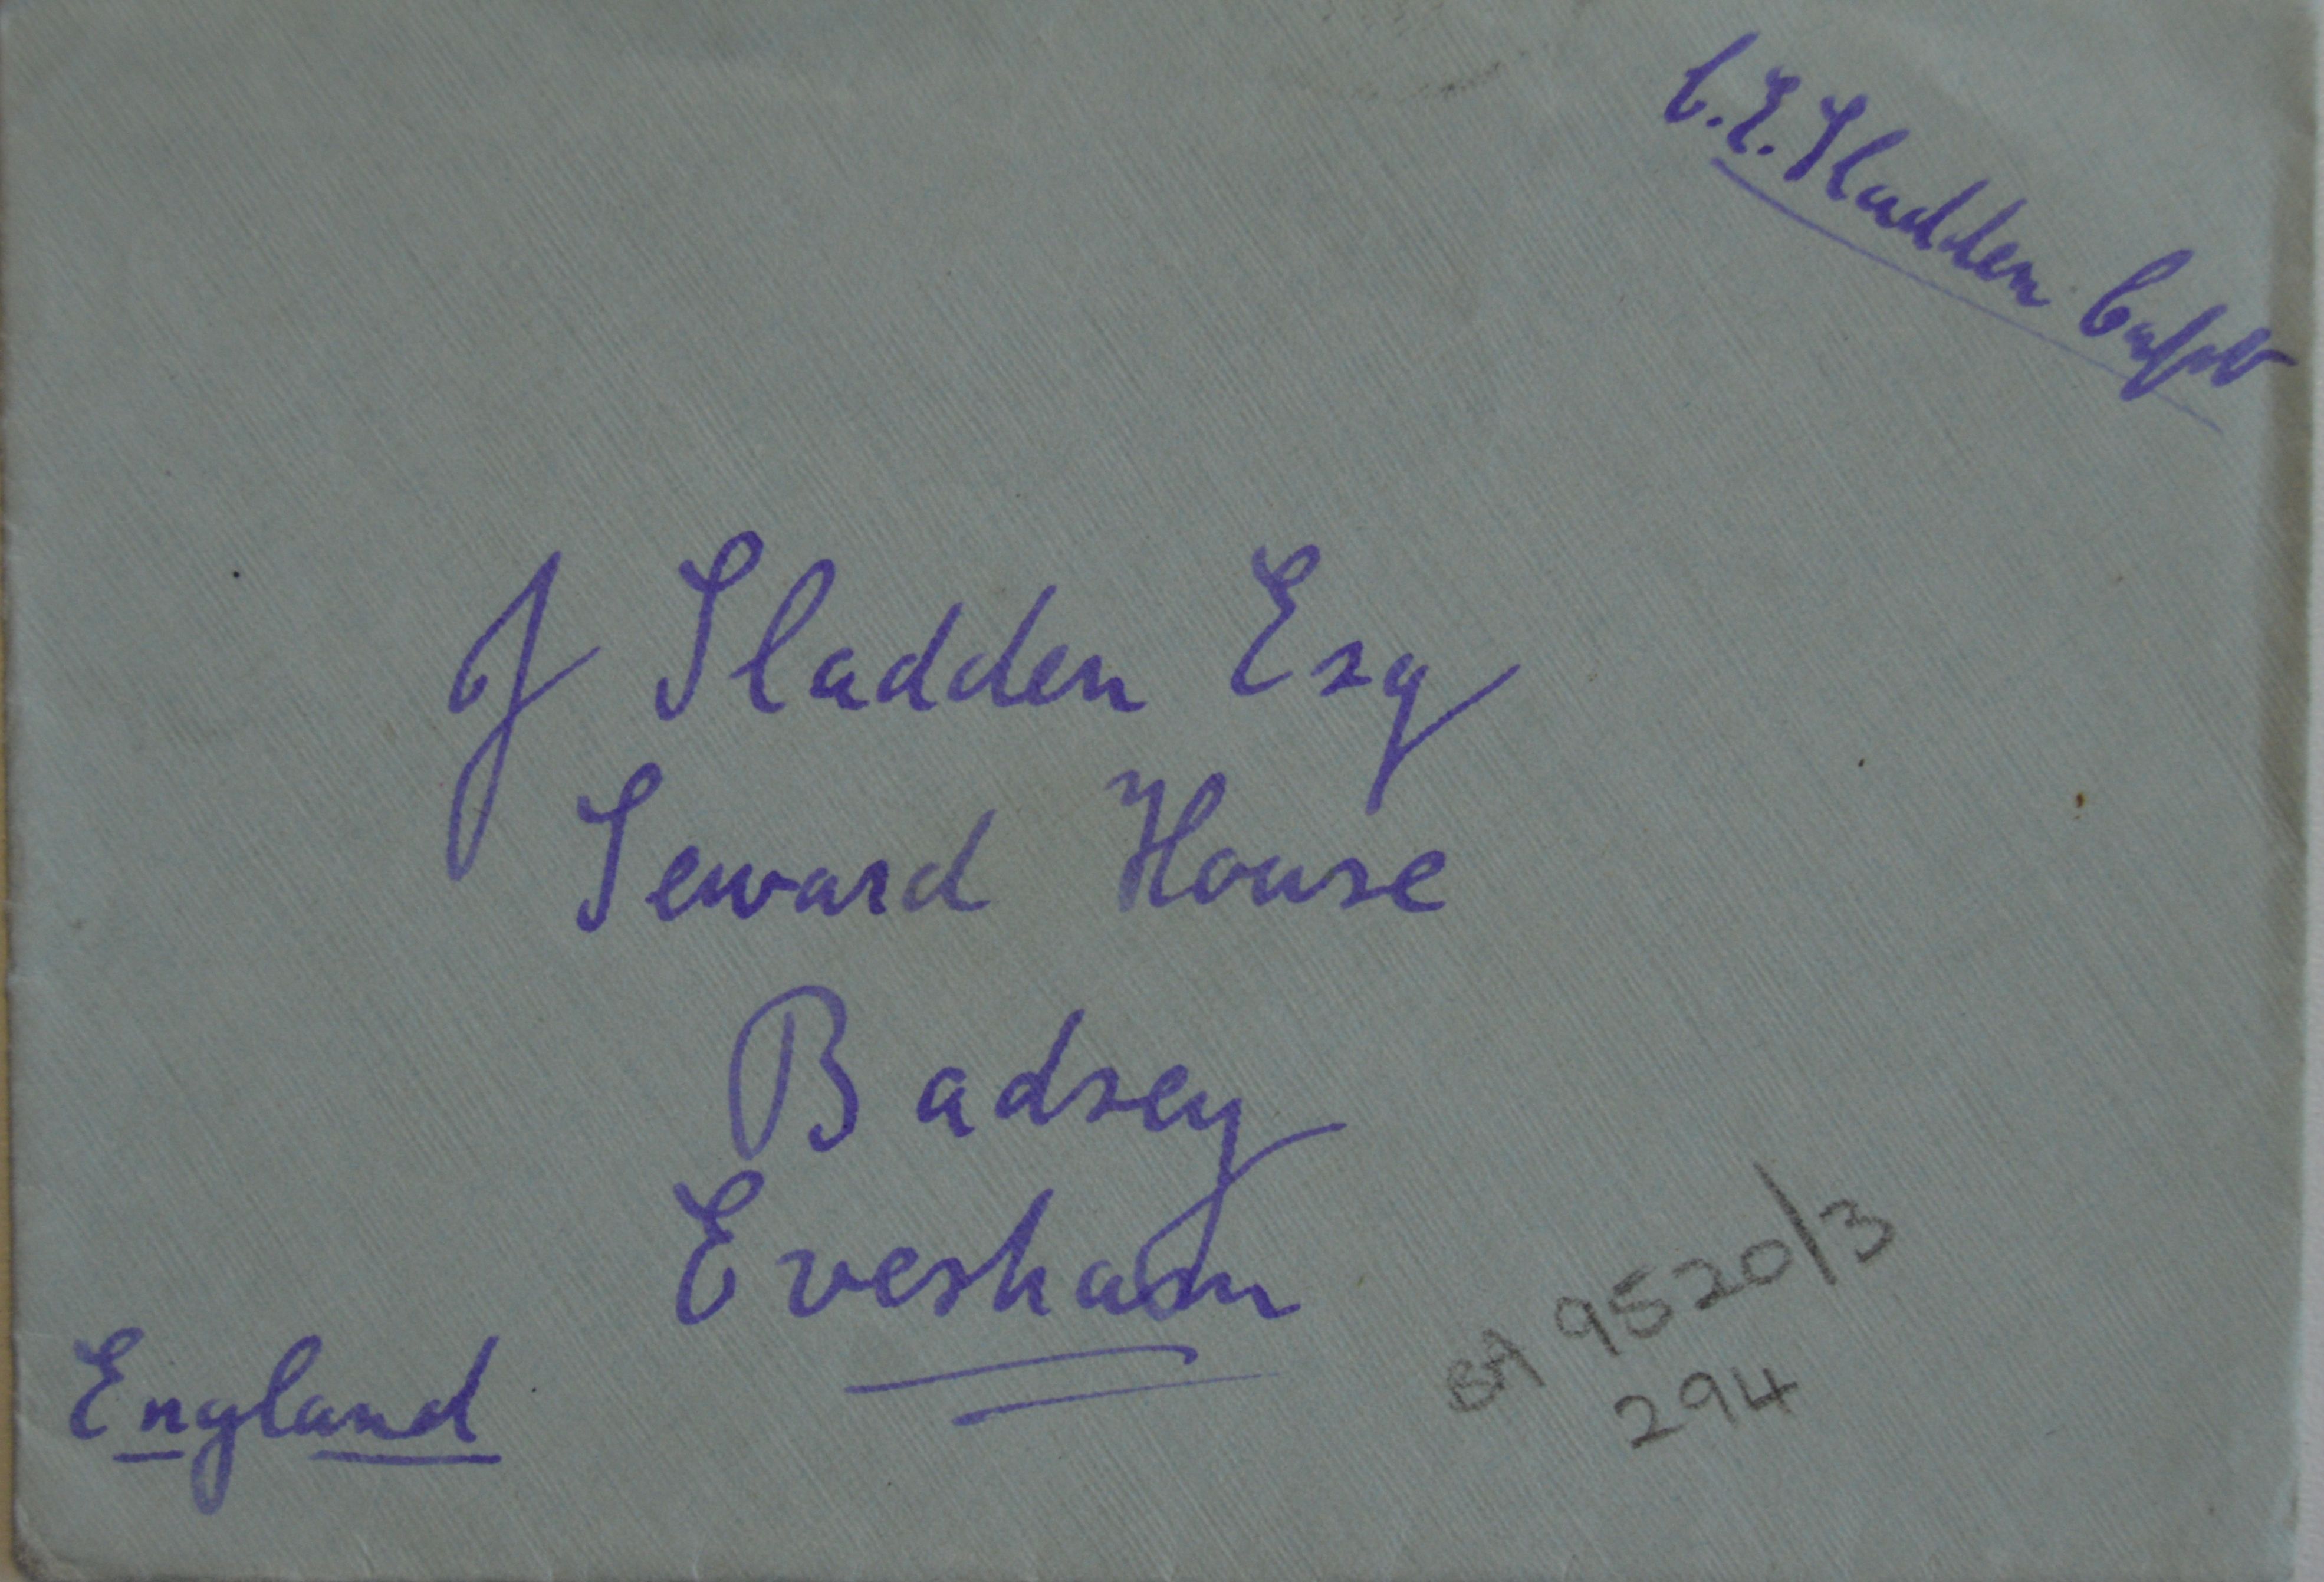 C.E. Sladden Capt
J Sladden Esq
Seward House
Badsey
Evesham
England
BA 9520/3
294